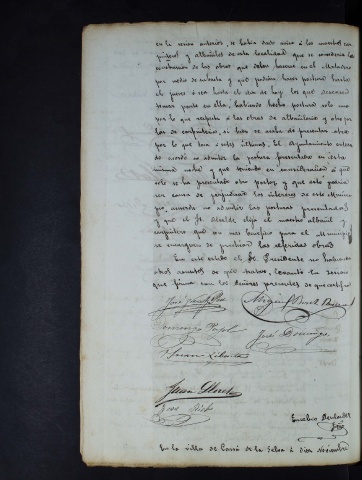 en la sesion anterior, se habia dado aviso á los maestros car
pinteros y albañiles de esta localidad que se concederia la
construccion de las obras que deben hacerse en el Matadero
por medio de subasta y que podrian hacer postura hasta
el jueves ó sea hasta el dia de hoy los que deseasen
tomar parte en ella, habiendo hecho postura solo uno
por lo que respecta á las obras de albañileria y otro por
las de carpinteria, si bien se acaba de presentar otro
por lo que toca á estas últimas. El Ayuntamiento entera
do acordó no admitir la postura presentada en esta
misma noche y que teniendo en consideracion á que
solo se ha presentado otro postor, y que esto podria
ser causa de perjudicar los intereses de este Munici
pio, acuerda no admitir las posturas presentadas
y que el Sr. Alcalde elija el maestro albañil y
carpintero que con mas beneficio para el Municipio
se encarguen de practicar las referidas obras.
En este estado el Sr. Presidente no habiendo
otros asuntos de que tratar, levantó la sesion
que firma con los Señores presentes de que certifico
José
Miguel
Domingo
José Domingo
Juan
Juan Lloret
José
Eusebio
En la villa de Cassá de la Selva á diez Noviembre